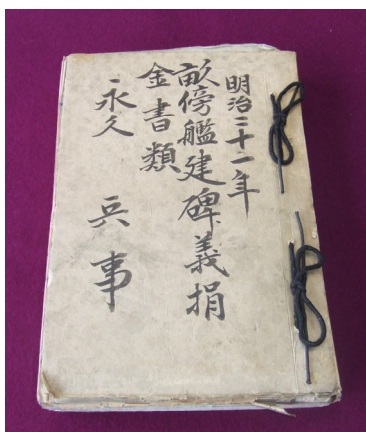 明治二十一年
畝傍艦建碑義捐
金書類
永久 兵事